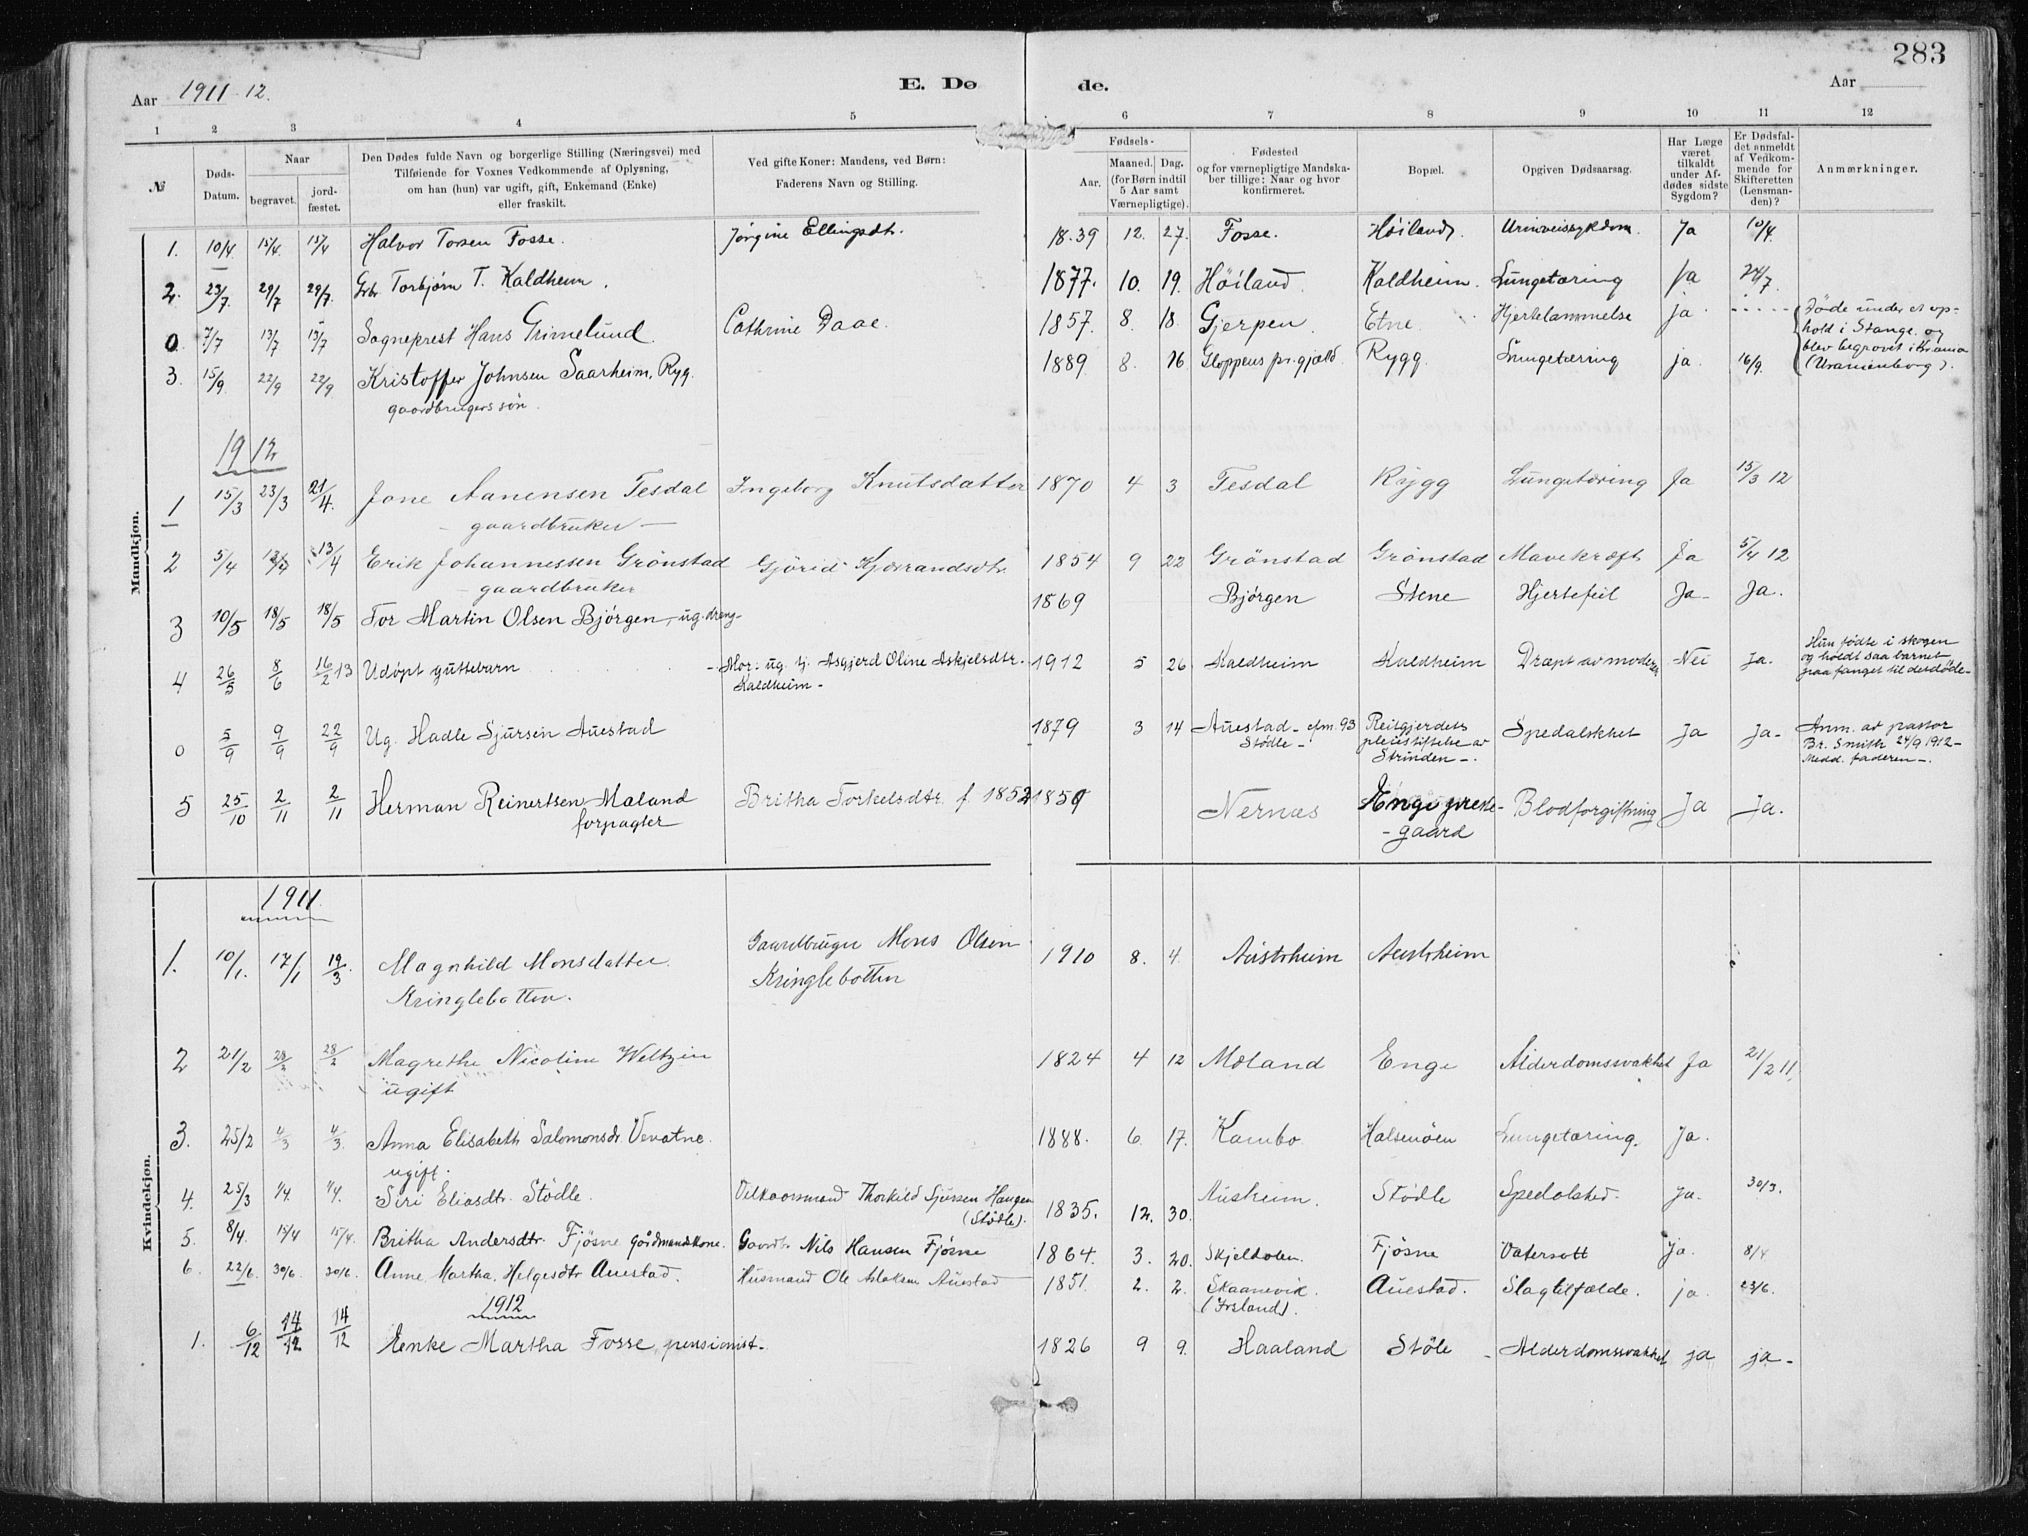 283
Aar 1911-12.
E. Dø
de.
Aar
1 2 3 4 5 6 7 8 9 10 11 12
№
Døds-Datum.
Naar
begravet.
jord-fæstet.
Den Dødes fulde Navn og borgerlige Stilling (Næringsvei) med
Tilføiende for Voxnes Vedkommende af Oplysning,
om han (hun) var ugift, gift, Enkemand (Enke)
eller fraskilt.
Ved gifte Koner: Mandens, ved Børn:
Faderens Navn og Stilling.
Fødsels-
Aar.
Maaned. Dag.
(for Børn indtil
5 Aar samt
Værnepligtige).
Fødested
og for værnepligtige Mandska-
ber tillige: Naar og hvor
konfirmeret.
Bopæl.
Opgiven Dødsaarsag.
Har Læge
været
tilkaldt
under Af-
dødes sidste
Sygdom?
Er Dødsfal-
det anmeldt
af Vedkom-
mende for
Skifteretten
(Lensman-
den)?
Anmærkninger.
Mandkjøn.
1. 10/4 15/4 15/4 Halvor Torsen Fosse. Jørgine Ellingsdtr. 1839 12. 27. Fosse. Høiland. Urinveissykdom. Ja 10/4.
2. 23/7. 29/7 29/7. Gbr. Torbjørn T. Kaldheim. 1877. 10. 19. Høiland. Kaldheim. Lungetæring Ja 24/7.
0. 7/7 13/7 13/7 Sogneprest Hans Grimelund. Cathrine Daae. 1857. 8. 18. Gjerpen. Etne. Hjertelammelse ja. - - - - - Døde under et op-
hold i Stange og
blev begravet i Krania
(Uranienborg).
3. 15/9. 22/9 22/9 Kristoffer Johnsen Saarheim, Ryg. 1889 8. 16 Gloppens pr.gjæld Rygg. Lungetæring ja. 16/9.
gaardbrugers søn.
1912
1 15/3 23/3 21/4. Jone Aanensen Tesdal Ingeborg Knutsdatter 1870 4 3 Tesdal Rygg Lungetæring Ja 15/3 12
- gaardbruker -
2 5/4 13/4 13/4 Erik Johannessen Grönstad Gjörid Kjærrandsdtr. 1854 9 22 Grönstad Grönstad Mavekræft Ja 5/4 12
- gaardbruker
3 10/5 18/5 18/5 Tor Martin Olsen Bjørgen, ug. dreng- 1869 Bjørgen Stene Hjertefeil Ja- Ja.
4 26/5 8/6 16/2 13 Udøpt guttebarn - Mor: ug. tj. Asgjerd Oline Askjelsdtr. 1912 5 26 Kaldheim Kaldheim Dræpt av moderen Nei Ja. Hun fødte i skogen
og holdt saa barnet
paa fanget til det døde-
Kaldheim -
0 5/9 9/9 22/9 Ug. Hadle Sjursen Auestad 1879 3 14 Auestad - kfm. 93 Reitgjerdets Spedalskhet Ja Ja- Anm. av pastor
Stødle - pleiestiftelse av Br. Smith 24/9 1912-
Strinden -. Medd. faderen -.
5 25/10 2/11 2/11 Herman Reinertsen Maland Britha Torkelsdtr. f. 1852 1859 Nernæs Enge præste- Blodforgiftning Ja Ja.
forpagter - gaard
Kvindekjøn.
1911
1. 10/1. 17/1 19/3. Magnhild Monsdatter Gaardbruger Mons Olsen 1910 8. 4. Austrheim Austrheim
Kringlebotten. Kringlebotten
2 21/2 28/2 28/2 Magrethe Nicoline Weltzin 1824 4 12 Mæland Enge Alderdomssvakhet Ja 21/2 11.
ugift
3. 25/2 4/3 4/3. Anna Elisabeth Salomonsdr. Vevatne. 1888. 6. 17. Kambo Halsenöen Lungetæring. Ja.
ugift.
4. 25/3 1/4. 1/4. Siri Eliasdtr. Stödle. Velkaarsmand Thorkild Sjursen Haugen 1835. 12. 30. Ausheim. Stödle Spedalsked. ja. 30/3.
(Stödle).
5. 8/4. 15/4 15/4. Britha Andersdtr. Fjösne gårdmandskone. Gaardbr. Nils Hansen Fjösne 1864. 3. 20. Skjeldalen. Fjösne Vatersott Ja. 8/4
6. 22/6. 30/6. 30/6. Anne Martha Helgesdtr Auestad. Husmand Ole Aslaksen Auestad 1851. 2. 2. Skaanevik. Auestad. Slagtilfælde. ja. 23/6.
(Frsland).
1912
1. 6/12 14/12 14/12 Enke Martha Fosse, pensionist- 1826 9 9. Haaland Støle - Alderdomssvakhet ja ja-